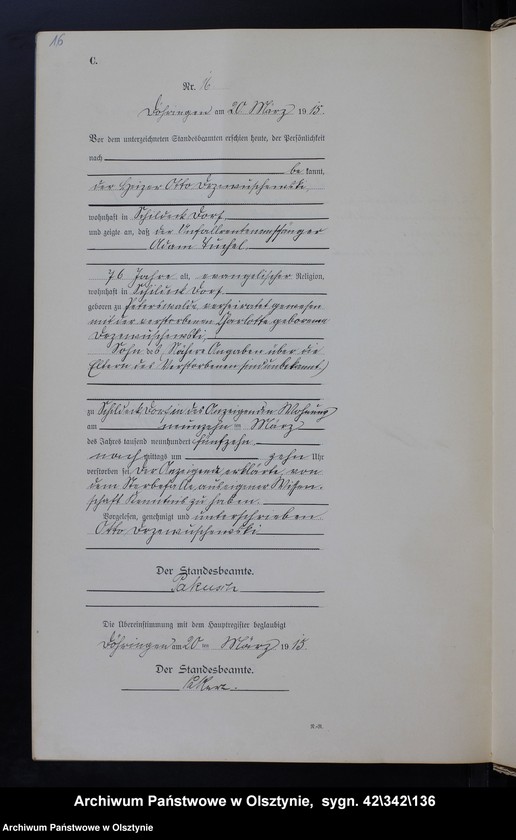 16
C.
Nr. 16
Döhringen am 20 März 1915.
Vor dem unterzeichneten Standesbeamten erschien heute, der Persönlichkeit
nach
be kannt,
der Heizer Otto
wohnhaft in Schildeck Dorf
und zeigte an, daß der Unfallrentenempfänger
Adam
76 Jahre alt, evangelischer Religion,
wohnhaft in Schildeck Dorf
geboren zu Peterswalde, verheiratet gewesen
mit der verstorbenen Charlotte geborenen
Sohn des (Nähere Angaben über die
Eltern des Verstorbenen sind unbekannt)
zu Schildeck Dorf in des Anzeigenden Wohnung
am neunzehn ten März
des Jahres tausend neunhundert fünfzehn
nach mittags um zehn Uhr
verstorben sei. Der Anzeigende erklärte, von
dem Sterbefalle aus eigener Wissen-
schaft Kenntnis zu haben.
Vorgelesen, genehmigt und unterschrieben
Otto
Der Standesbeamte.
Die Übereinstimmung mit dem Hauptregister beglaubigt
Döhringen am 20 ten März 1915.
Der Standesbeamte.
Archiwum Państwowe w Olsztynie, sygn. 42\342\136
Archiwum Państwowe w Olsztynie